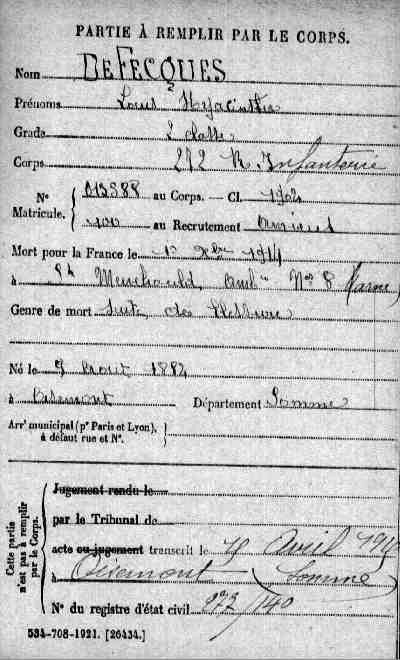 PARTIE À REMPLIR PAR LE CORPS.
Nom DEFECQUES
Prénoms Louis Hyacinthe
Grade 2 classe
Corps 272 R. Infanterie
N° Matricule. { 013388 au Corps. — Cl. 1902
100 au Recrutement Amiens
Mort pour la France le 1° Xbre 1914
à St Menehould, Ambce No 8 (Marne)
Genre de mort Suite de Blessure
Né le 7 Aout 1882
à Oisemont Département Somme
Arrt municipal (pr Paris et Lyon), à défaut rue et N°. }
Cette partie n'est pas à remplir par le Corps. {
Jugement rendu le
par le Tribunal de
acte ou jugement transcrit le Avril
à Oisemont (Somme)
N° du registre d'état civil 272/140
534-708-1921. [26434.]